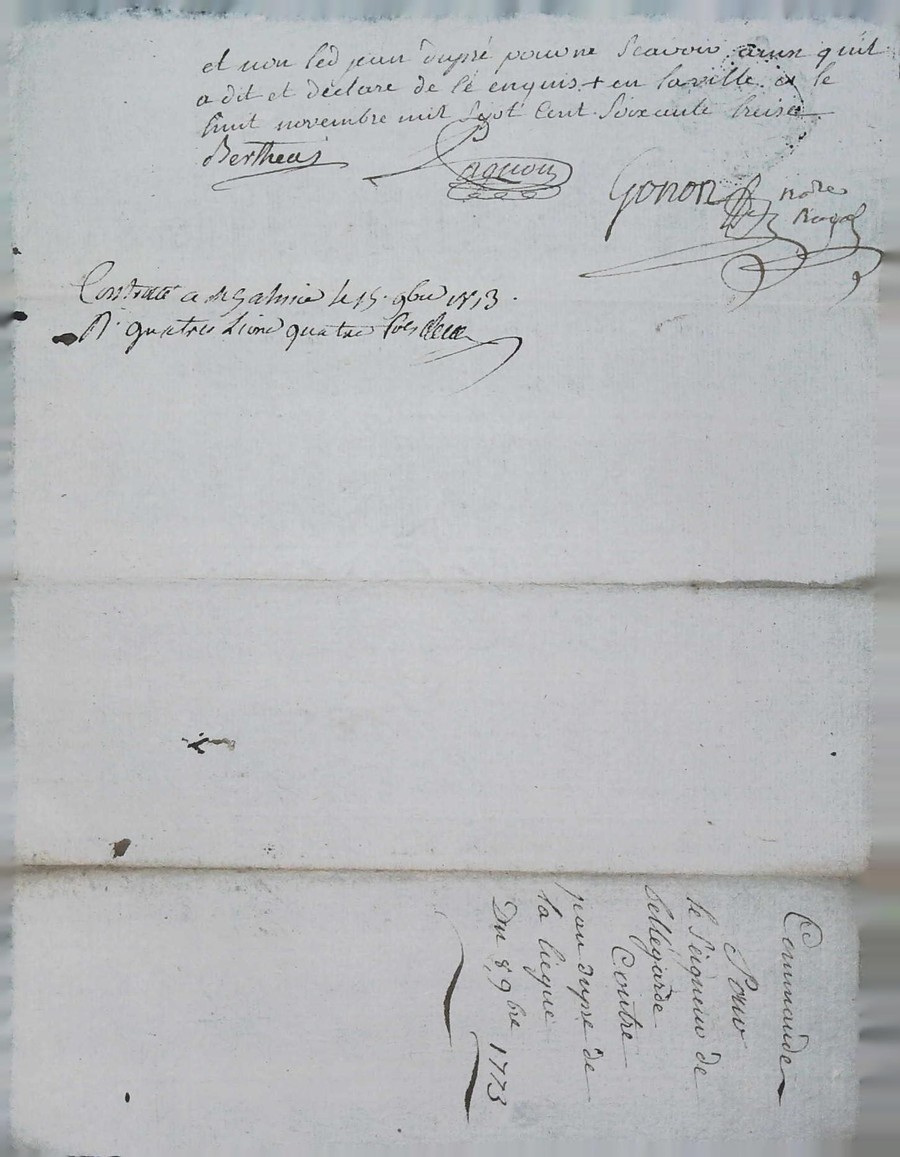 et non led jean dupré pour ne scavoir ainsy quil
a dit et declare de ce enquis + en laville a le
huit novembre mil sept cent soixante treise
Bertheas Pagnon
Gonon no.re
Royal
Controllé a St Galmier le 15. 9bre 1773.
R. quatres Livre quatre sols
Commande
Pour
le Seigneur de
bellegarde
Contre
jean dupre de
la liegue
Du 8, 9bre 1773